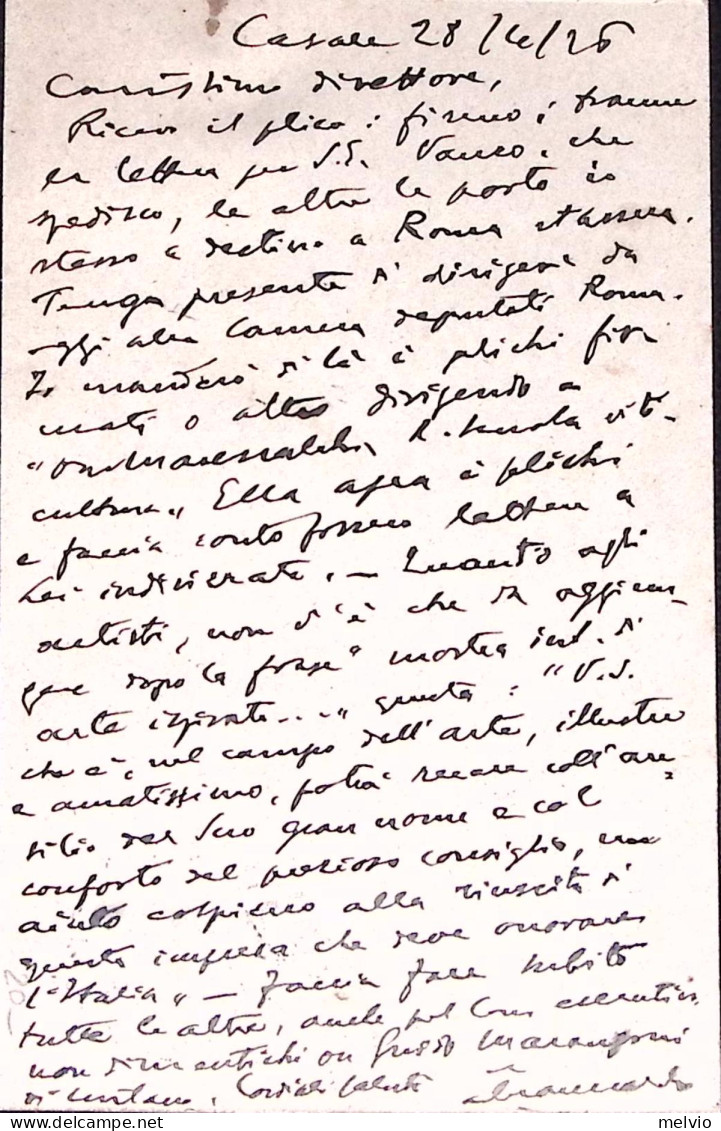 Casale 28/4/26
Carissimo direttore,
Ricevo il plico: firmo, tranne
la lettera per S.E. Vanco, che
spedisco, le altre le porto io
stesso a destino a Roma stassera.
Tenga presente di dirigere da
oggi alla Camera deputati Roma.
Io manderò di là i plichi fir
mati o altro dirigendo a
R. Scuola viti-
cultura" Ella apra i plichi
e faccia conto fossero lettere a
Lei indirizzate. - Quanto agli
artisti, non c'è che da aggiun-
gere dopo la frase "mostra int. di
arte ispirata..." questa: "V.S.
che è, nel campo dell'arte, illustre
e amatissimo, potrà recare coll'au-
silio del Suo gran nome e col
conforto del prezioso consiglio, un
aiuto cospicuo alla riuscita di
questa impresa che deve onorare
l'Italia" - Faccia fare subito
tutte le altre, anche pel Com
non dimentichi on Guido Marangoni
di Milano. Cordiali saluti
20-
melvio